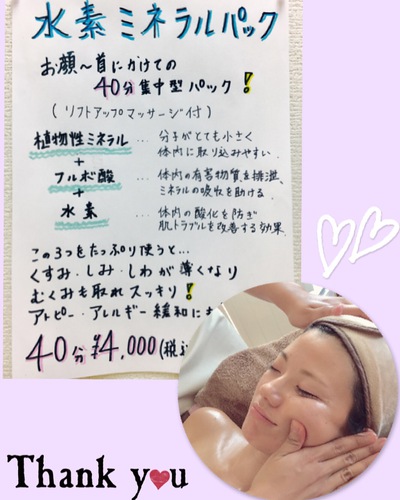 水素ミネラルパック
お顔〜首にかけての
40分集中型パック!
(リフトアップマッサージ付)
植物性ミネラル … 分子がとても小さく
体内に取り込みやすい
+
フルボ酸 … 体内の有害物質を排泄、
ミネラルの吸収を助ける
+
水素 … 体内の酸化を防ぎ
肌トラブルを改善する効果
この3つをたっぷり使うと…
くすみ・しみ・しわが薄くなり
むくみも取れスッキリ!
アトピー・アレルギー緩和に
40分 ¥4,000(税
Thank you